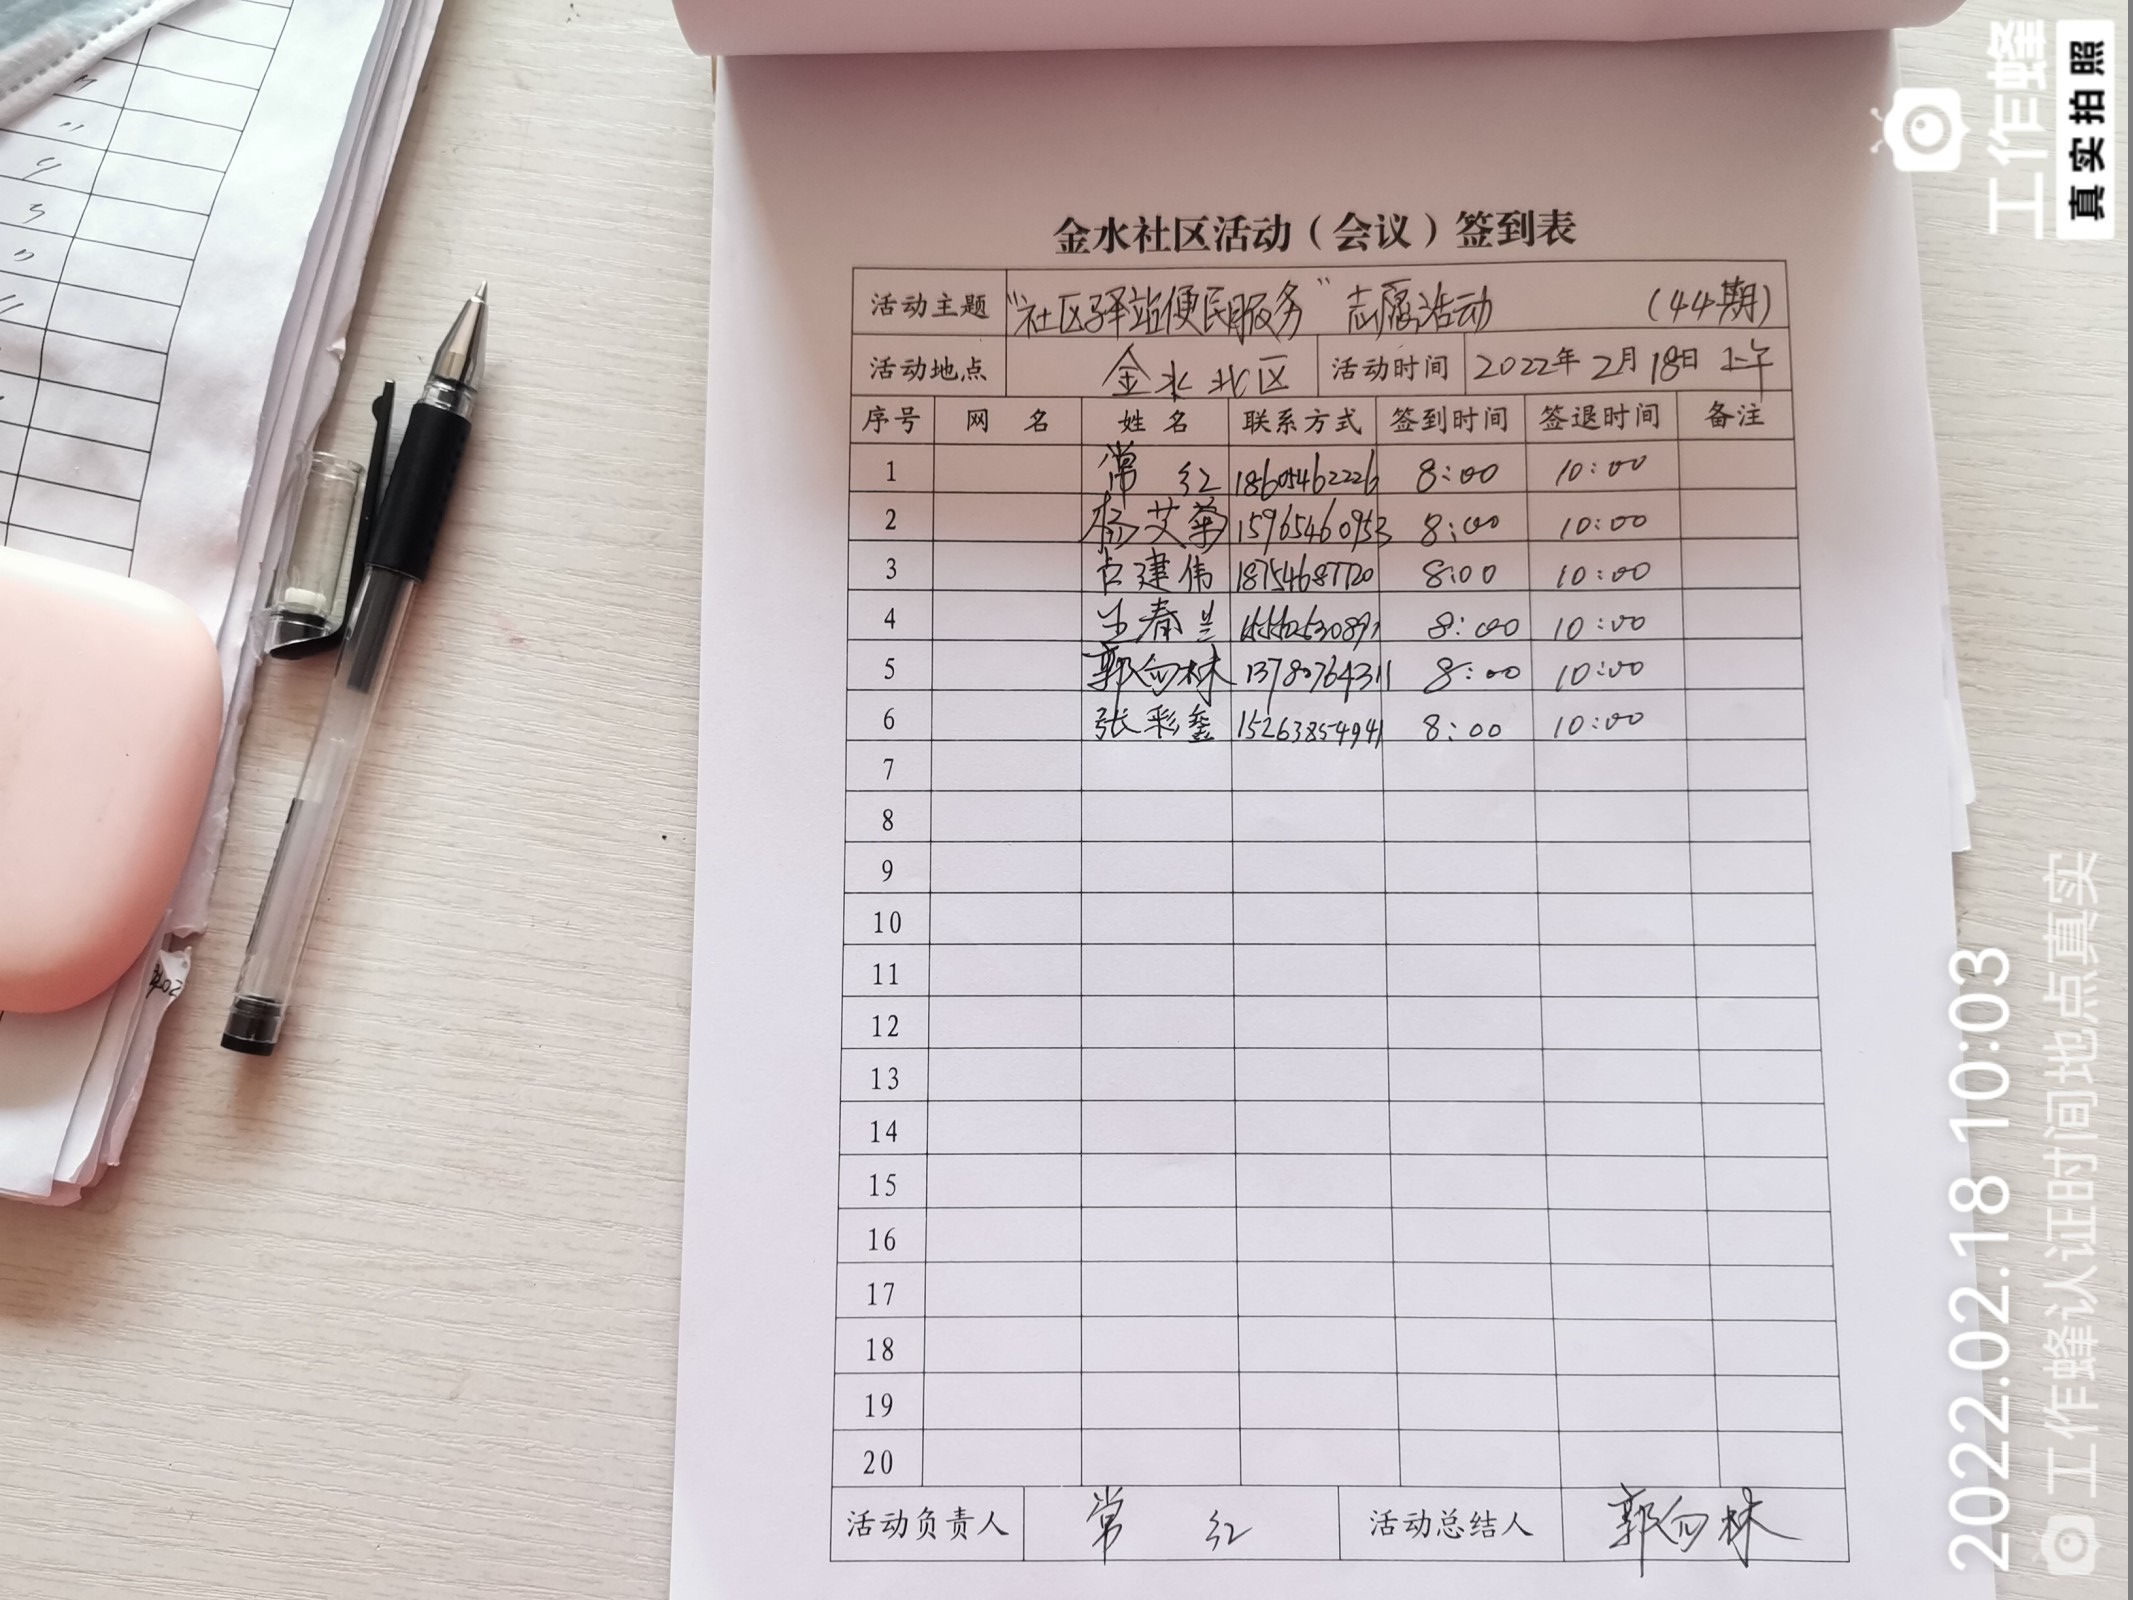 金水社区活动（会议）签到表
活动主题 “社区驿站便民服务”志愿活动 （44期）
活动地点 金水北区 活动时间 2022年2月18日 上午
序号 网 名 姓 名 联系方式 签到时间 签退时间 备注
1 常 红 18605462226 8:00 10:00
2 杨艾菊 15965460953 8:00 10:00
3 古建伟 18754687720 8:00 10:00
4 王春兰 8:00 10:00
5 郭向林 13780764311 8:00 10:00
6 张彩鑫 15263854941 8:00 10:00
7
8
9
10
11
12
13
14
15
16
17
18
19
20
活动负责人 常 红 活动总结人 郭向林
工作蜂
真实拍照
2022.02.18 10:03
工作蜂认证时间地点真实